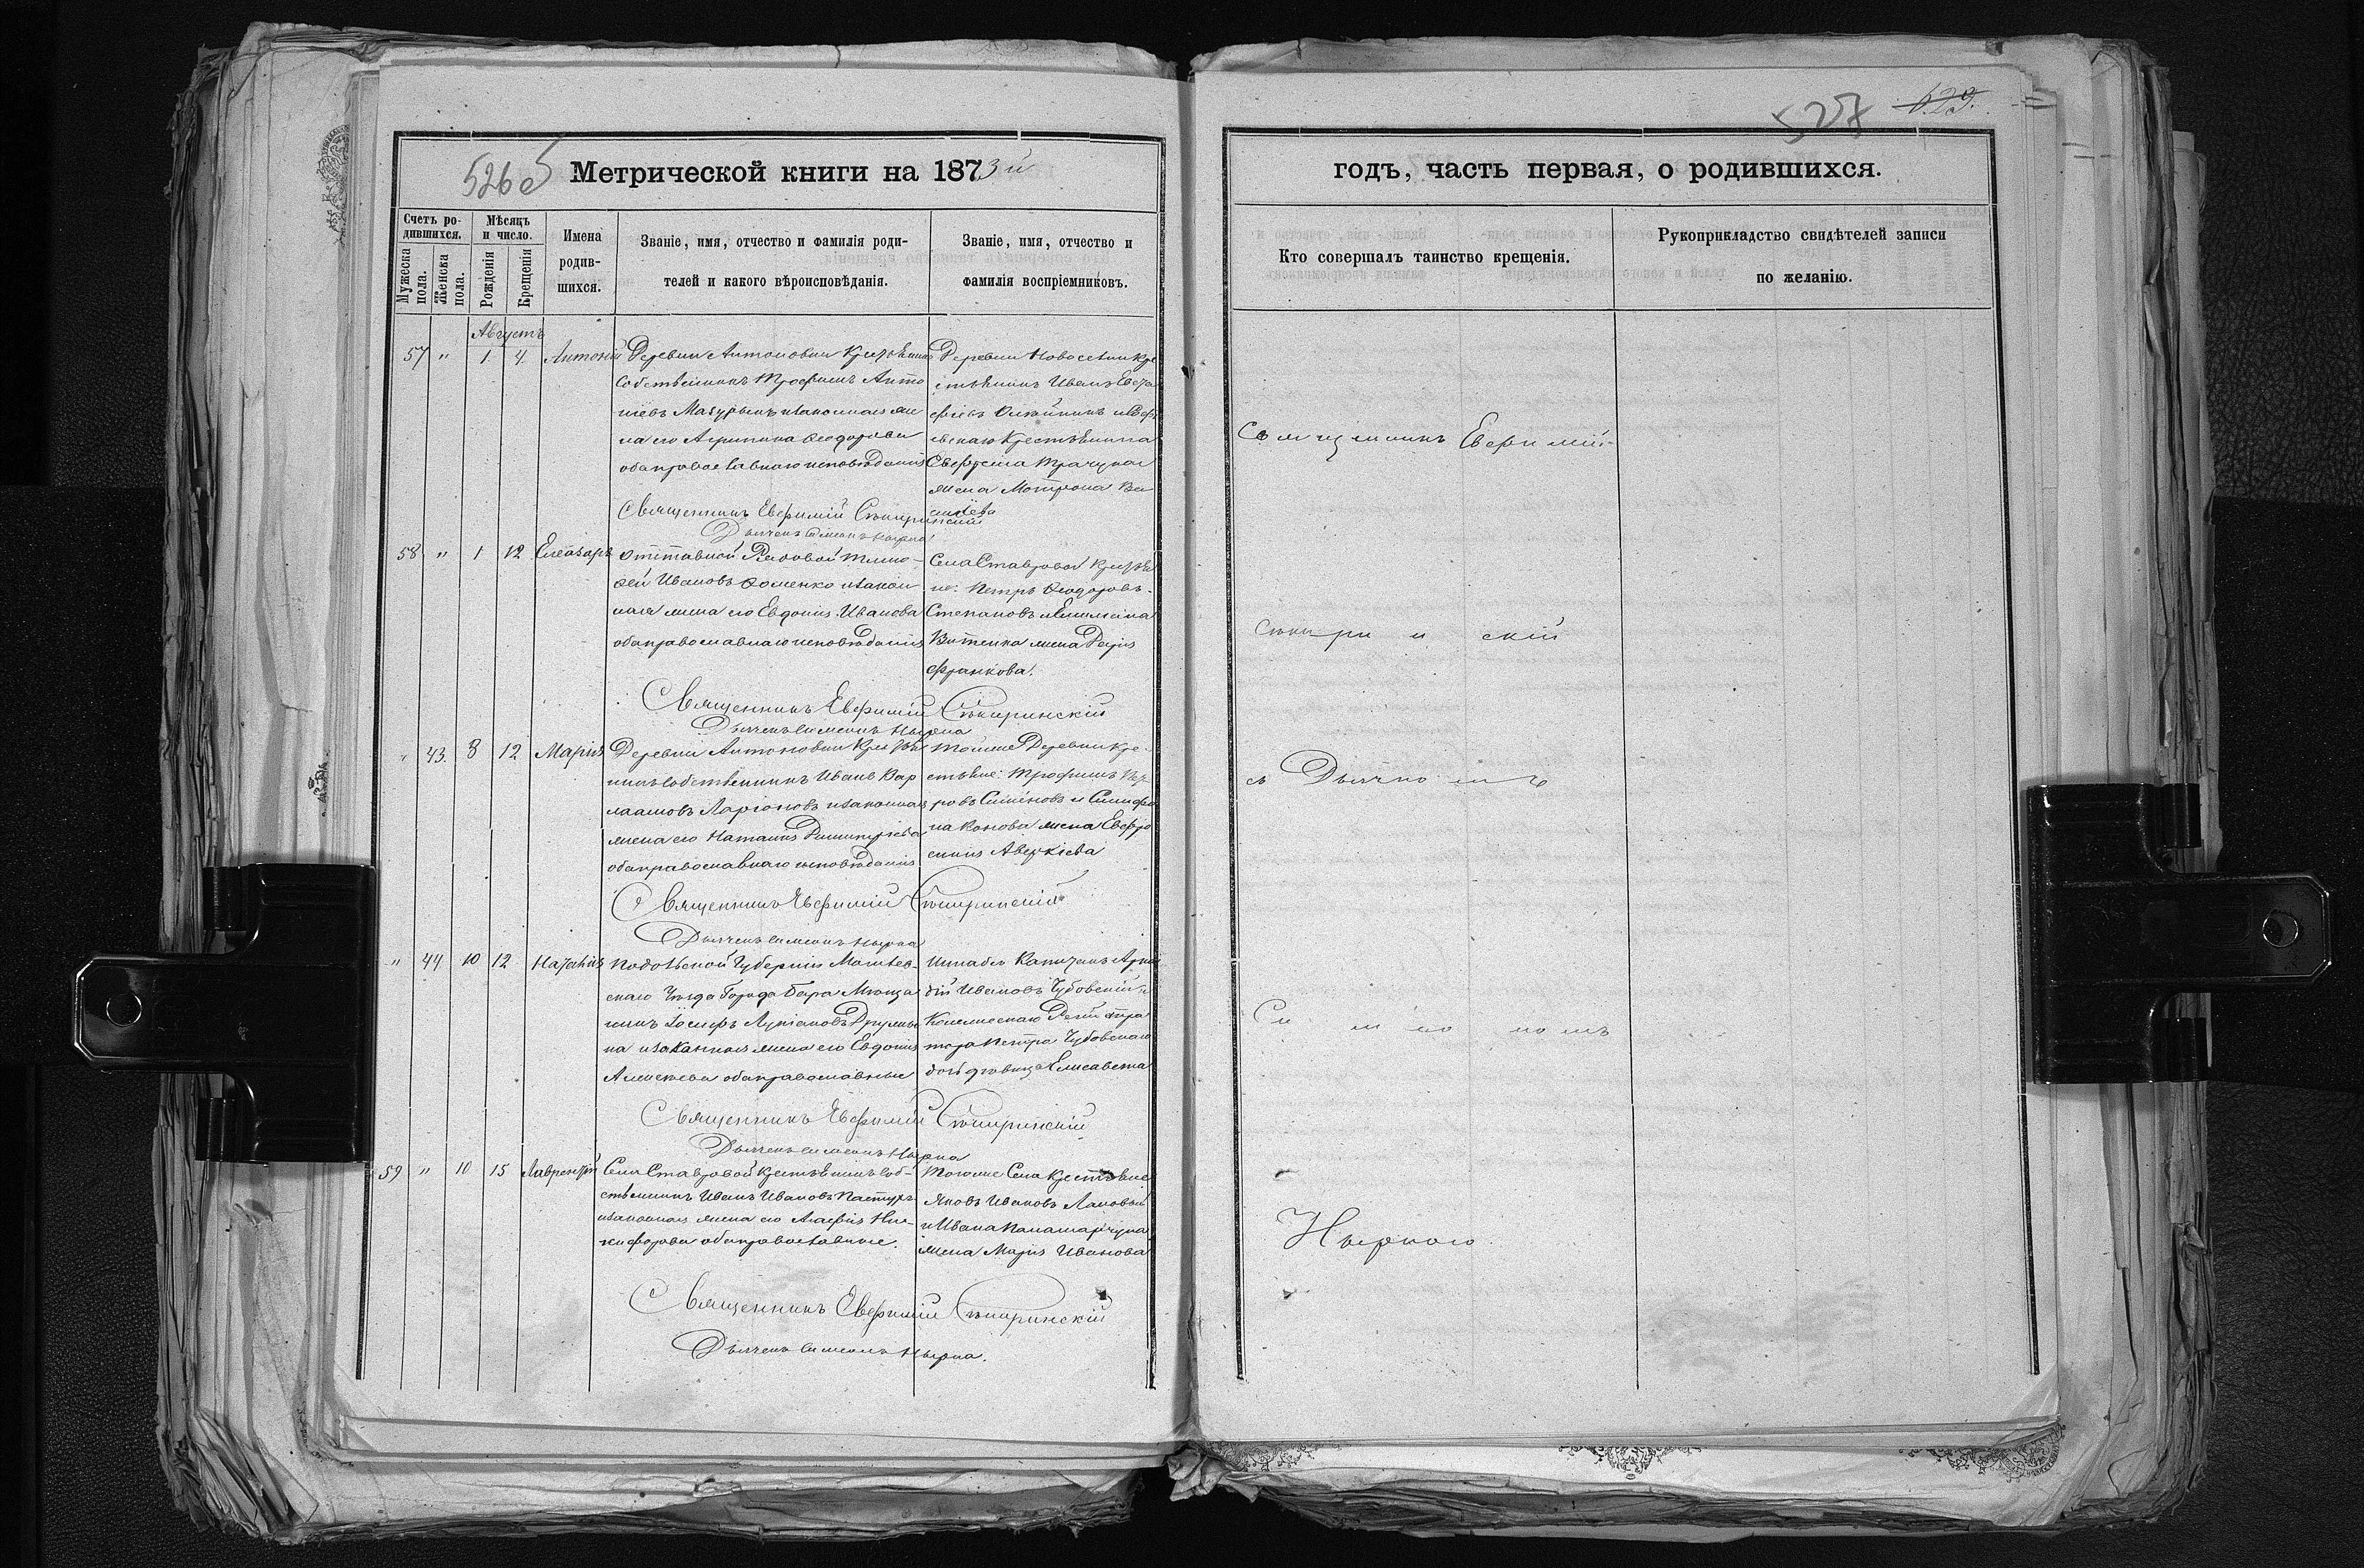 526 об
Метрической книги на 1873й
Счетъ ро-
дившихся.
Мужеска
пола.
Женска
пола.
Мѣсяцъ
и число.
Рожденія
Крещенія
Имена
родив-
шихся.
Званіе, имя, отчество и фамилія роди-
телей и какого вѣроисповѣданія.
Званіе, имя, отчество и
фамилія воспріемниковъ.
Августъ
57 " 1 4. Антоній
Деревни Антоновки Крестьянинъ
Собственникъ Трофимъ Анто
ніевъ Мазурыкъ и законная же
на его Агрипина Феодорова
оба православнаго исповѣданія
Деревни Новоселки Кре
стьянинъ Иванъ
Олейникъ и
Крестьянина
жена Мотрона Ва
силіева
Священникъ Евфимій Сѣкиринскій
Дьячекъ Симеонъ Нырка
58 " 1 12 Елеазаръ
Отставной Рядовой Тимо-
фей Ивановъ Фоменко и закон
ная жена его Евдокія Иванова
оба православнаго исповѣданія
Села Ставровой Крестья
не: Петръ Феодоровъ
Степановъ и
жена Дарія
Франкова.
Священникъ Евфимій Сѣкиринскій
Дьячекъ Симеонъ Нырка
" 43. 8 12 Марія
Деревни Антоновки Крестья
нинъ Собственникъ Иванъ Вар
лаамовъ Ларіоновъ и законная
жена его Наталія Димитріева
оба православнаго исповѣданія
Тойже Деревни Кре-
стьяне: Трофимъ Пет
ровъ Сименовъ и
жена Евфро
синія Аверкіева
Священникъ Евфимій Сѣкиринскій
Дьячекъ Симеонъ Нырка
" 44 10 12 Наталія
Подольской Губерніи Могилев-
скаго Уѣзда Города Бара Мѣща
нинъ Іосифъ Лукіановъ
и законная жена его Евдокія
Алексѣева оба православные
Штабсъ Капитанъ Арка
дій Ивановъ Чубовскій и
Колежскаго Регистра
тора Петра Чубовскаго
дочь дѣвица Елисавета
Священникъ Евфимій Сѣкиринскій
Дьячекъ Симеонъ Нырка
59 " 10 15 Лаврентій
Села Ставровой Крестьянинъ Соб-
ственникъ Иванъ Ивановъ Пастухъ
и законная жена его Агафія Ни-
кифорова оба православные.
Тогоже Села Крестьяне
Яковъ Ивановъ Лановый
и Ивана Паламарчука
жена Марія Иванова
Священникъ Евфимій Сѣкиринскій
Дьячекъ Симеонъ Нырка.
527 529.
годъ, часть первая, о родившихся.
Кто совершалъ таинство крещенія.
Рукоприкладство свидѣтелей записи
по желанію.
Священникъ Евфимій
Сѣкиринскій
съ Дьячкомъ
Симеономъ
Ныркою